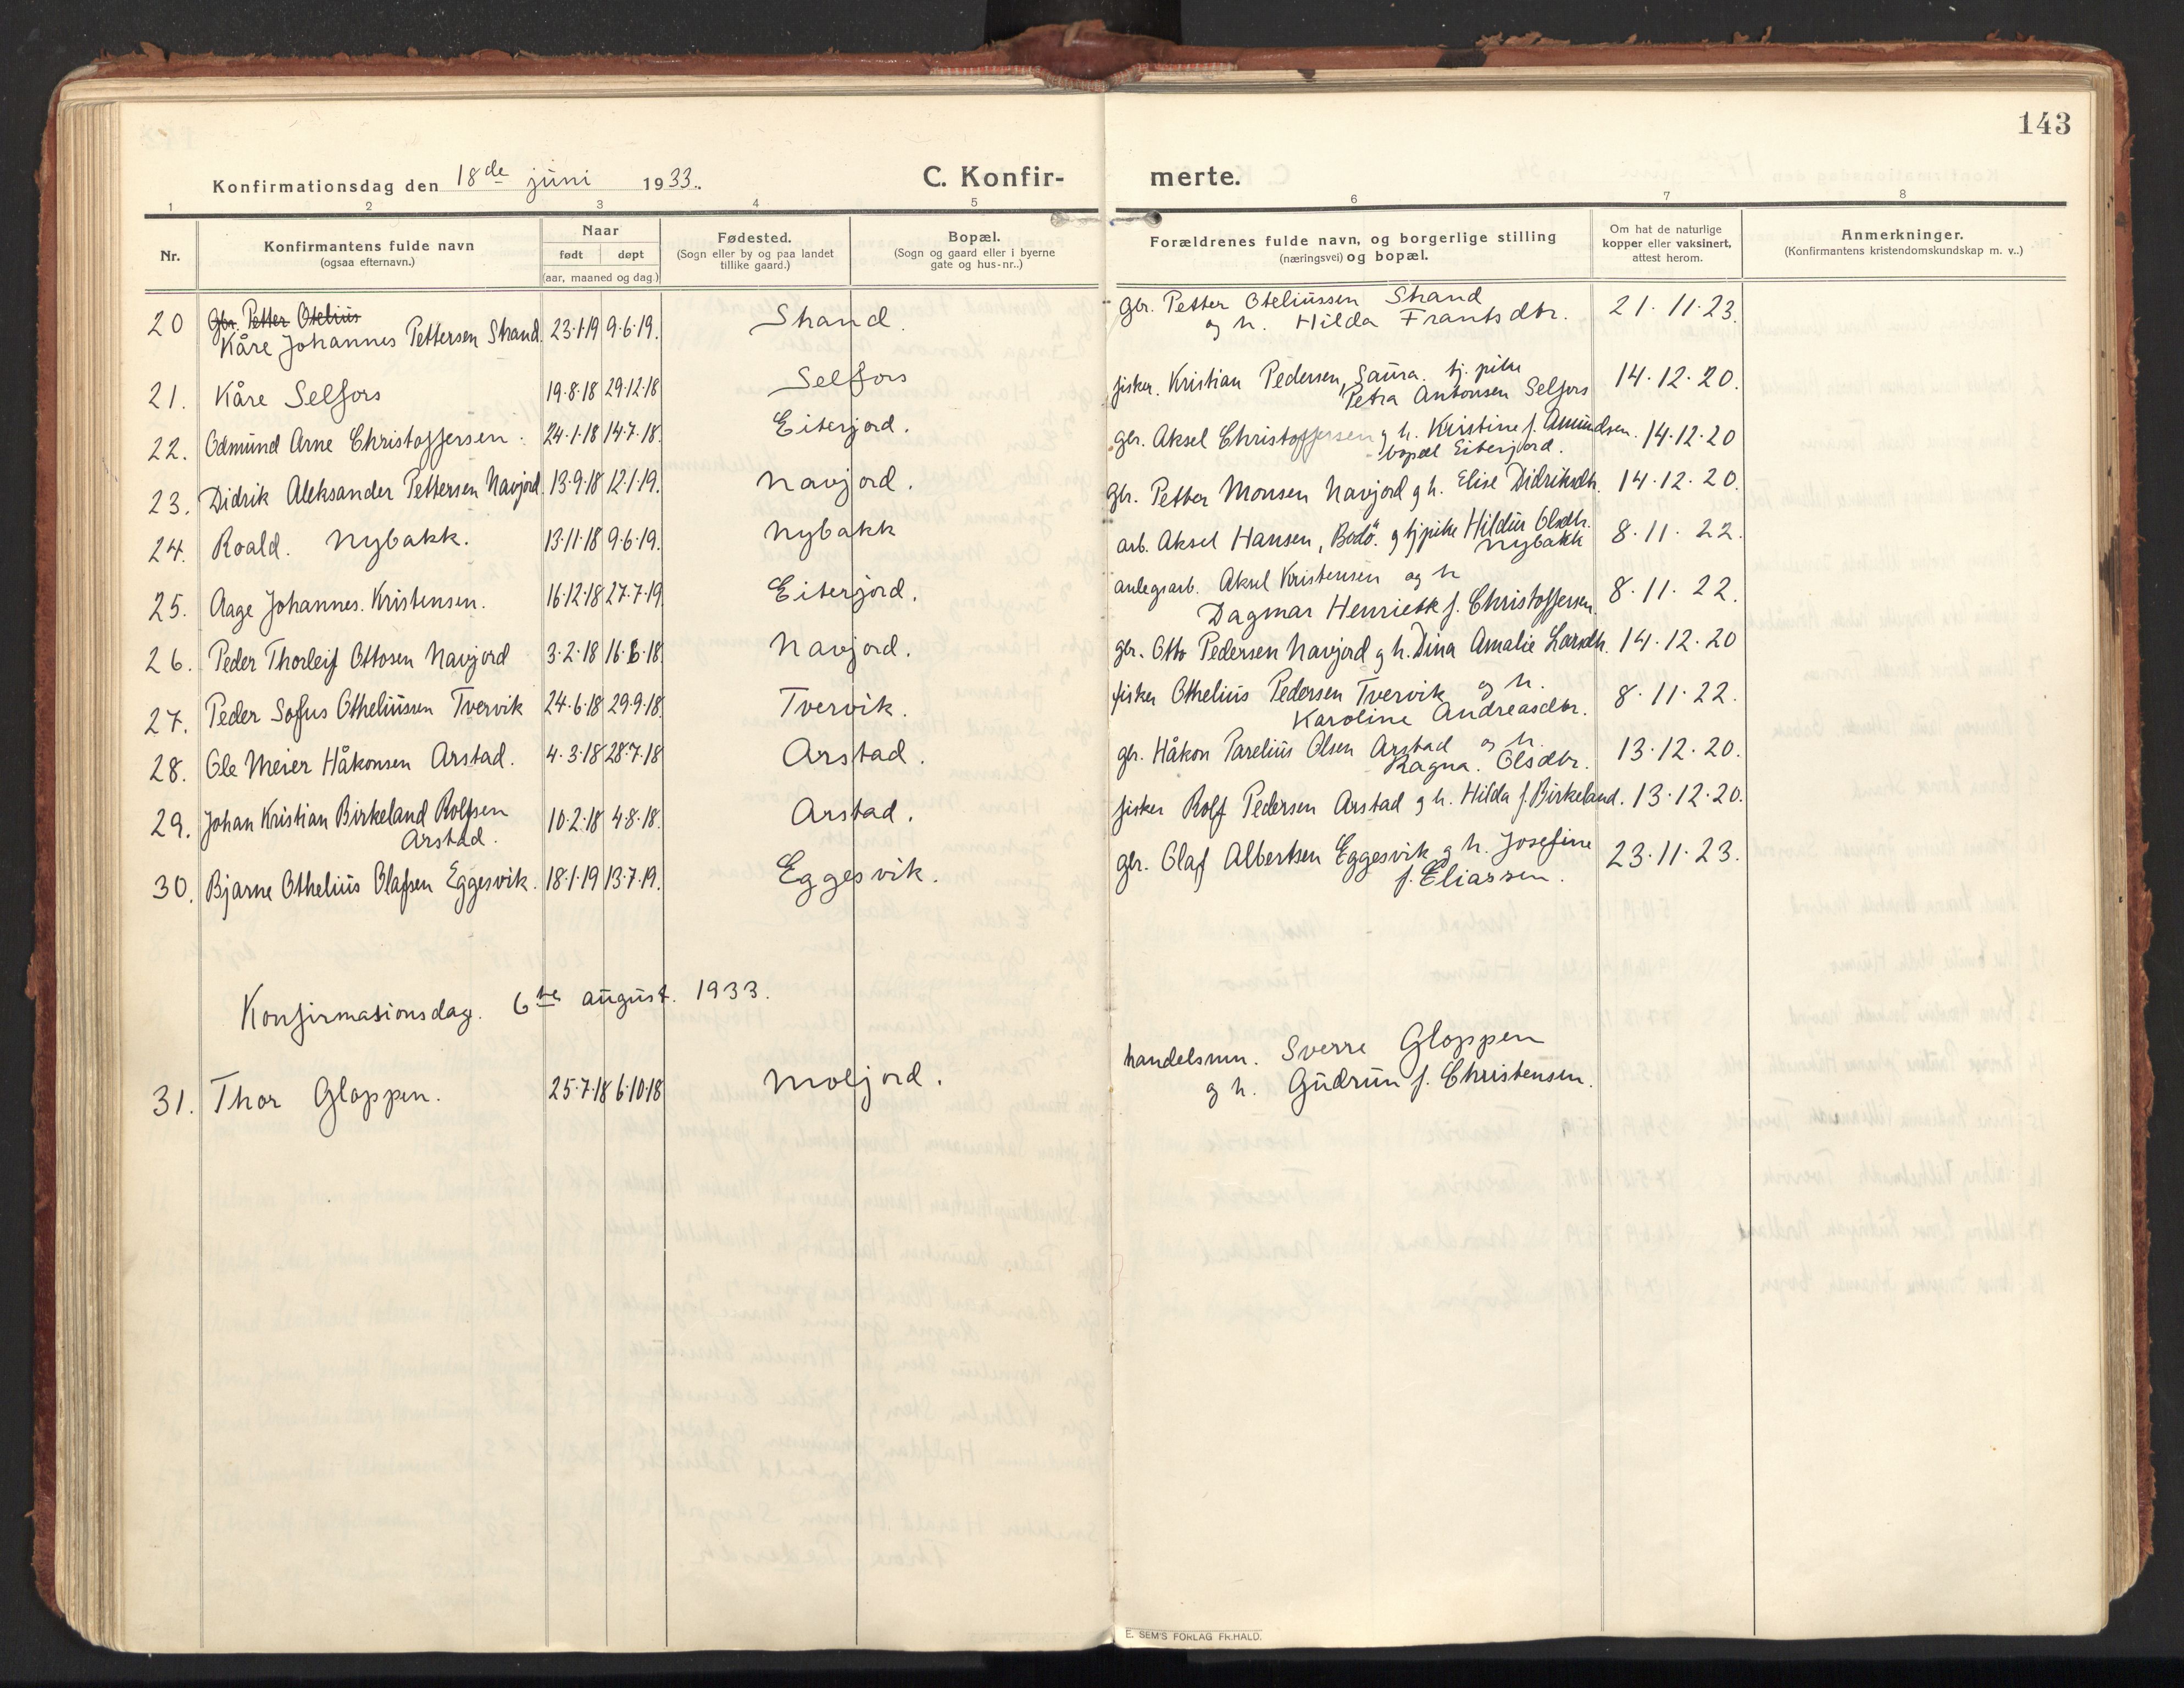 143
Konfirmationsdag den 18de juni 1933. C. Konfir- merte.
1 2 3 4 5 6 7 8
Nr.
Konfirmantens fulde navn
(ogsaa efternavn.)
Naar
født døpt
(aar, maaned og dag.)
Fødested.
(Sogn eller by og paa landet
tillike gaard.)
Bopæl.
(Sogn og gaard eller i byerne
gate og hus-nr..)
Forældrenes fulde navn, og borgerlige stilling
(næringsvei) og bopæl.
Om hat de naturlige
kopper eller vaksinert,
attest herom.
Anmerkninger.
(Konfirmantens kristendomskundskap m. v..)
20 Gbr. Petter Otelius
Kåre Johannes Pettersen Strand. 23·1·19 9·6·19. Strand. gbr. Petter Oteliussen Strand
og h. Hilda Frantsdtr. 21·11·23.
21. Kåre Selfors 19·8·18 29·12·18 Selfors fisker. Kristian Pedersen, Saura. tj. pike
Petra Antonsen Selfors 14·12·20.
22. Odmund Arne Christoffersen. 24·1·18 14·7·18. Eiterjord. gbr. Aksel Christoffersen g h. Kristine f. Amundsen. 14·12·20
bopæl Eiterjord.
23. Didrik Aleksander Pettersen Navjord. 13·9·18 12·1·19. Navjord. gbr. Petter Monsen Navjord g h. Elise Didriksdtr. 14·12·20.
24. Roald. Nybakk. 13·11·18 9·6·19. Nybakk arb. Aksel Hansen, Bodö. g tjpike Hildur Olsdtr.
Nybakk 8·11·22.
25. Aage Johannes. Kristensen. 16·12·18 27·7·19 Eiterjord. anlegsarb. Aksel Kristensen og h
Dagmar Henriette f. Christoffersen. 8·11·22.
26. Peder Thorleif Ottosen Navjord 3·2·18 16·6·18. Navjord. gbr. Otto Pedersen Navjord g h. Dina Amalie Larsdtr. 14·12·20
27. Peder Sofus Otheliussen Tvervik 24·6·18 29·9·18. Tvervik. fisker Othelius Pedersen Tvervik og h.
Karoline Andreasdtr. 8·11·22.
28. Ole Meier Håkonsen Arstad. 4·3·18 28·7·18 Arstad. gbr. Håkon Parelius Olsen Arstad og h.
Ragna. Olsdtr. 13·12·20.
29. Johan Kristian Birkeland Rolfsen
Arstad. 10·2·18 4·8·18. Arstad. fisker Rolf Pedersen Arstad g h. Hilda f. Birkeland. 13·12·20.
30. Bjarne Othelius Olafsen Eggesvik. 18·1·19 13·7·19. Eggesvik. gbr. Olaf Albertsen Eggesvik g h. Josefine
f. Eliassen. 23·11·23.
Konfirmasionsdag. 6te august. 1933.
31. Thor Gloppen. 25·7·18 6·10·18 Moljord. handelsmn. Sverre Gloppen
g h. Gudrun f. Christensen.
E. SEM'S FORLAG FR.HALD.